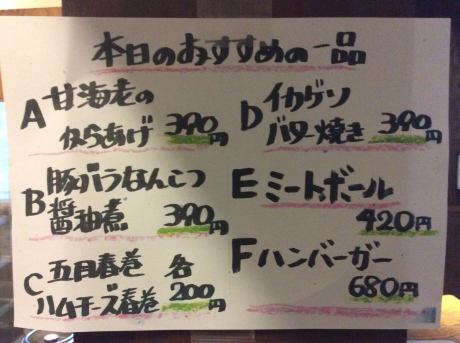 本日のおすすめの一品
A 甘海老の
からあげ 390円
B 豚バラなんこつ
醤油煮 390円
C 五目春巻 各
ハムチーズ春巻 200円
D イカゲソ
バター焼き 390円
E ミートボール
420円
F ハンバーガー
680円